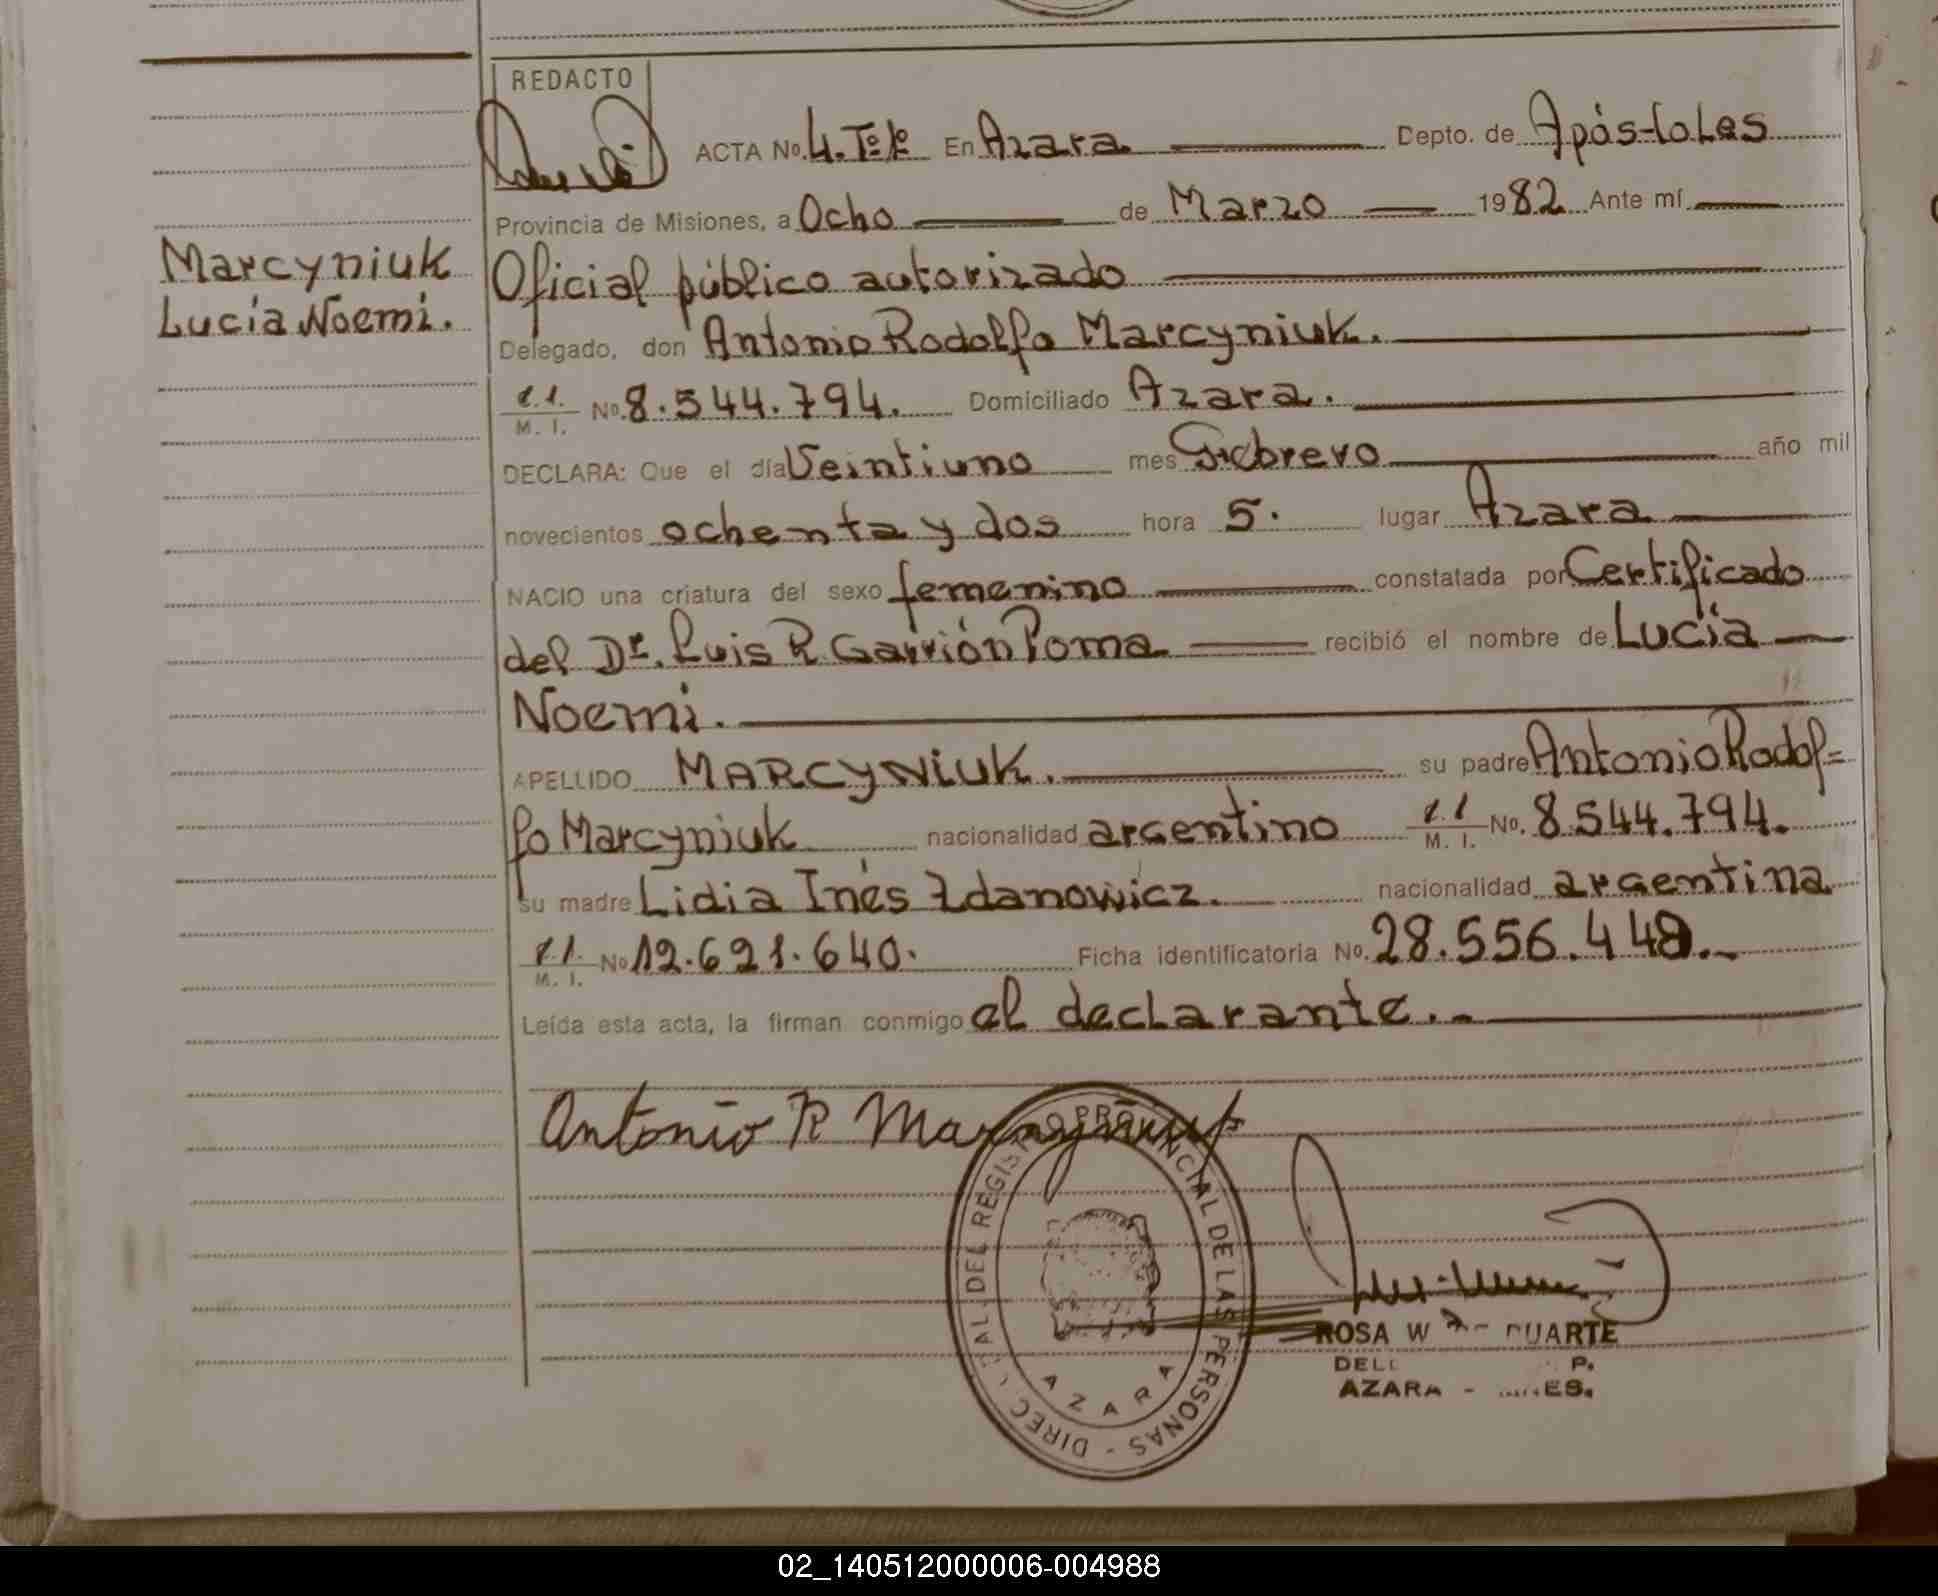 REDACTO
ACTA No. 4. Tº Iº En Azara Depto. de Apóstoles
Provincia de Misiones, a Ocho de Marzo 1982 Ante mí
Marcyniuk
Lucía Noemi.
Oficial público autorizado
Delegado, don Antonio Rodolfo Marcyniuk.
M. I. No. 8.544.794. Domiciliado Azara.
DECLARA: Que el día Veintiuno mes Febrero año mil
novecientos ochenta y dos hora 5. lugar Azara
NACIO una criatura del sexo femenino constatada por Certificado
del Dr. Luis R. Garrión Poma recibió el nombre de Lucía
Noemi.
APELLIDO MARCYNIUK. su padre Antonio Rodol=
fo Marcyniuk nacionalidad argentino M. I. No. 8.544.794.
su madre Lidia Inés Zdanowicz. nacionalidad argentina
M. I. No 12.621.640. Ficha identificatoria No. 28.556.448.-
Leída esta acta, la firman conmigo el declarante.-
Antonio R Marcyniuk
DIREC AL DEL REGISTRO PROVINCIAL DE LAS PERSONAS -
AZARA
ROSA W DUARTE
DEL P.
AZARA - ES.
02_140512000006-004988